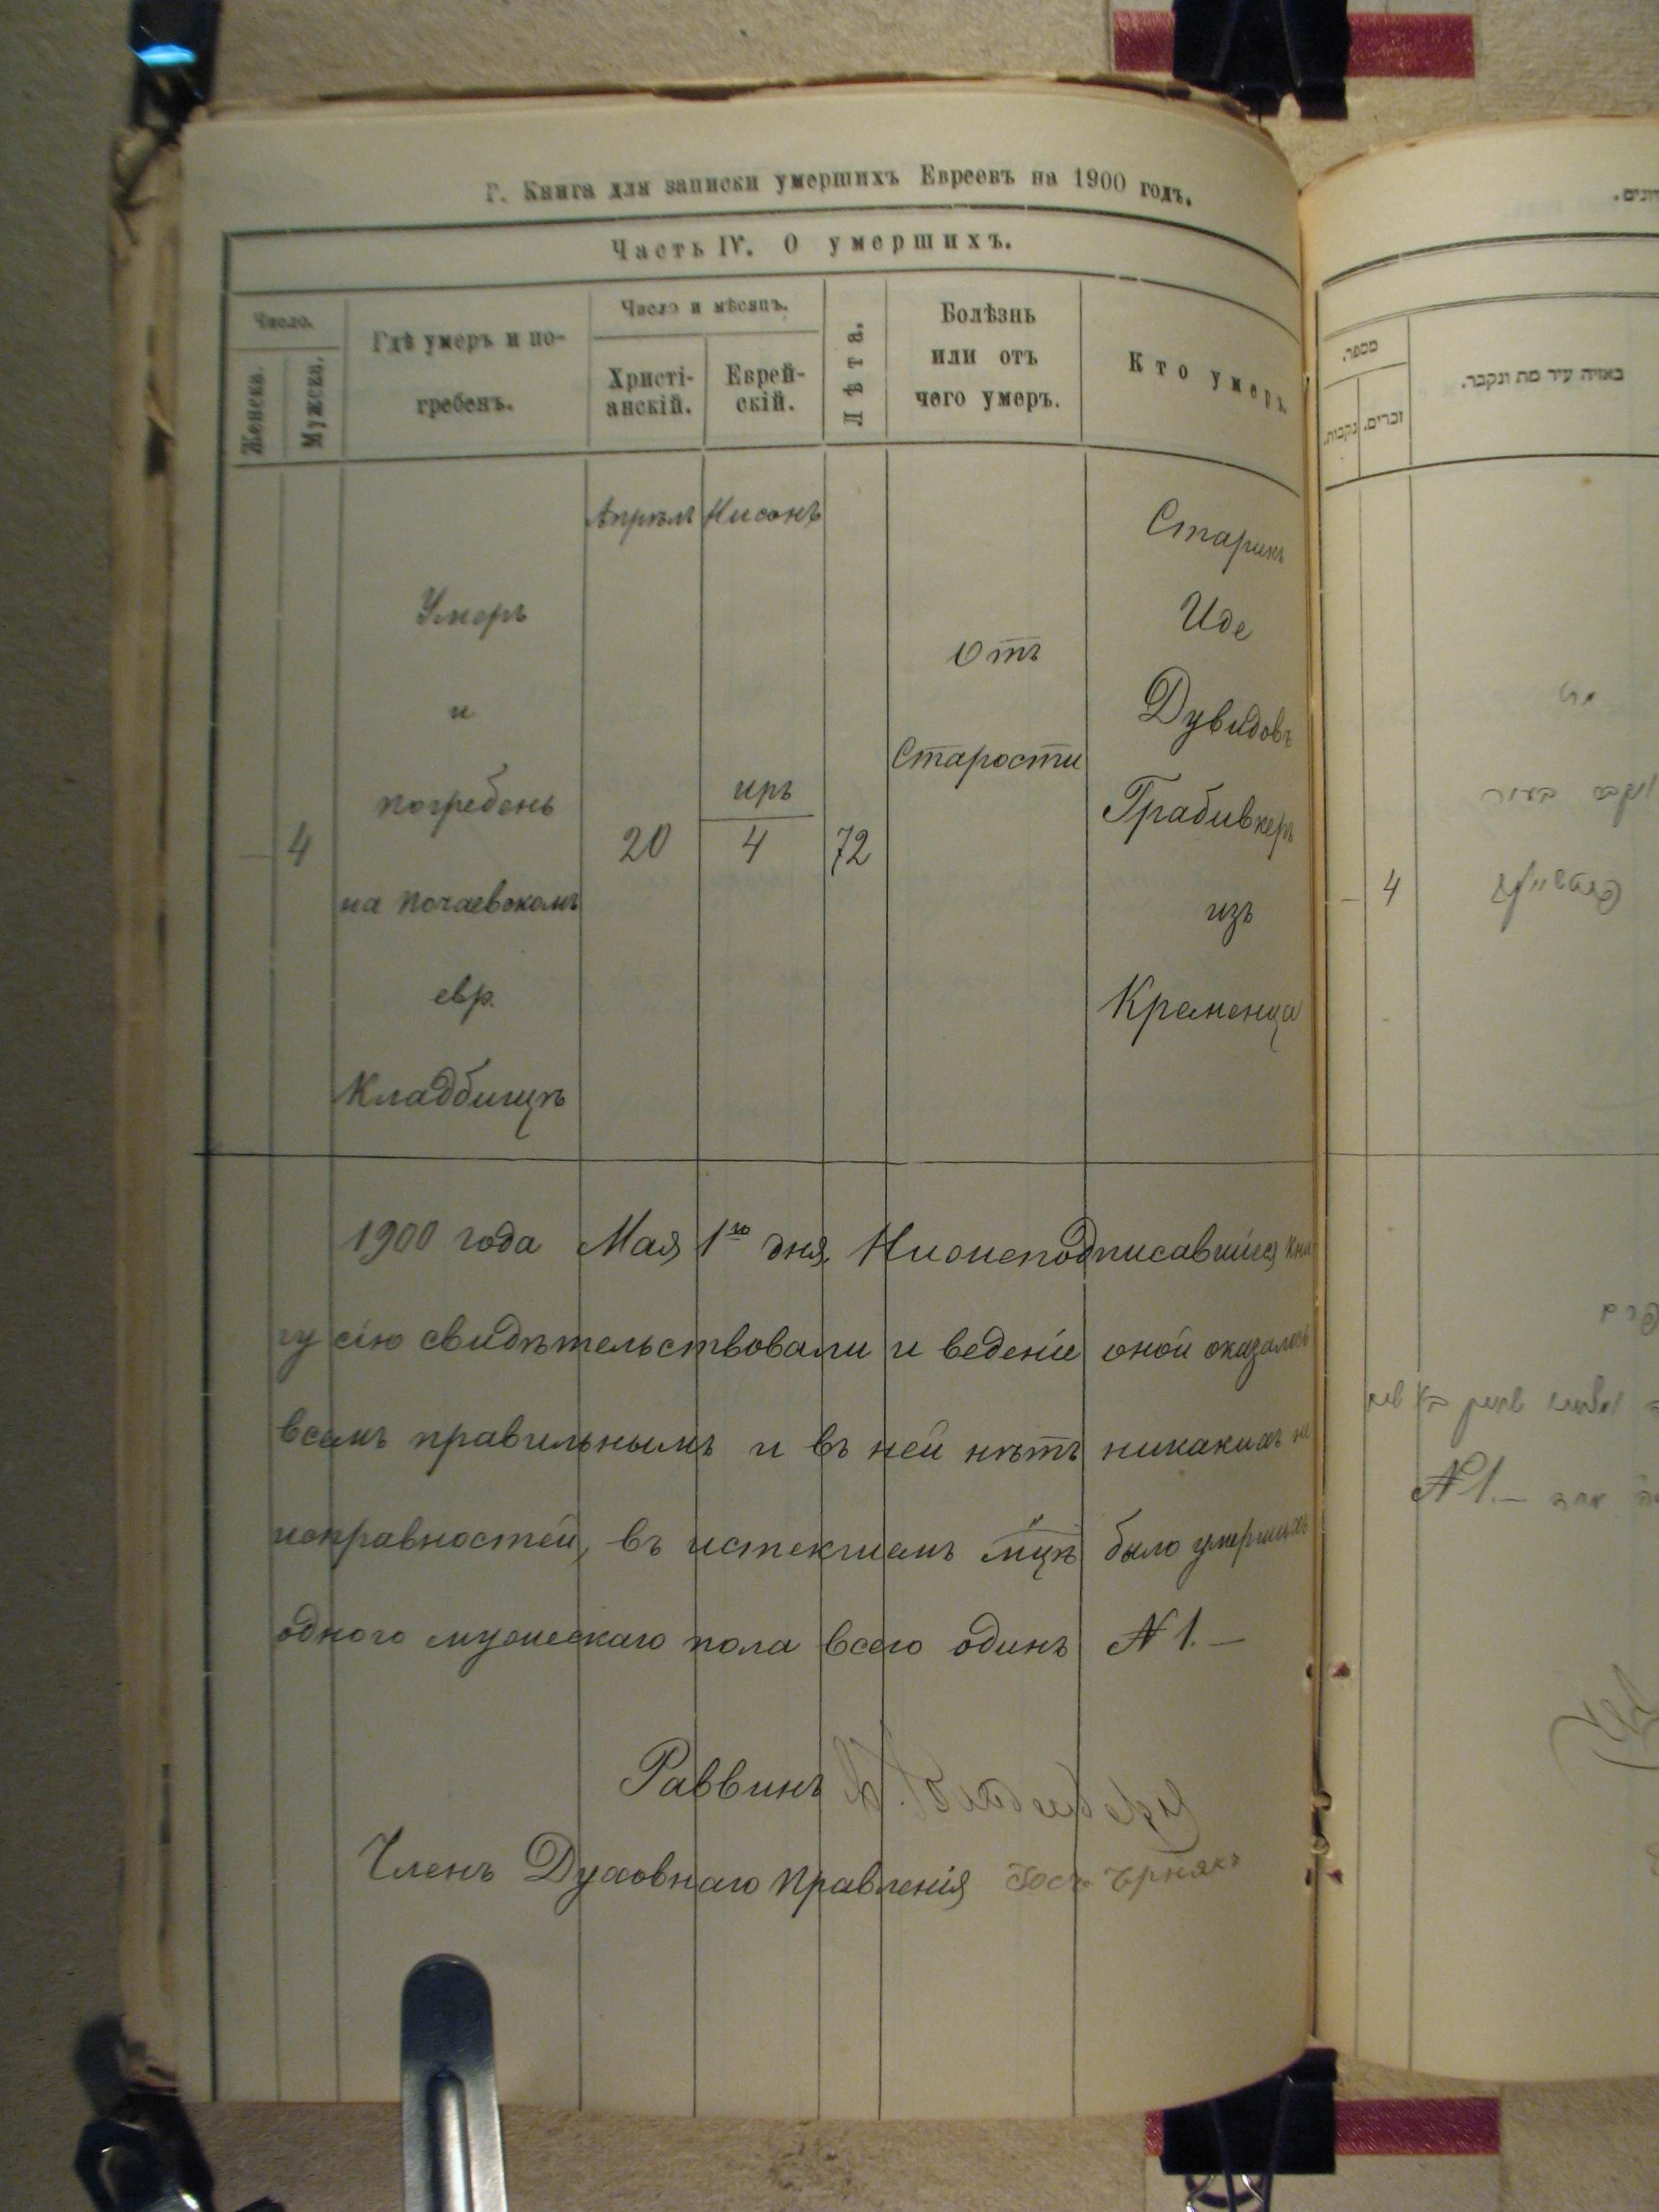 Г. Книга для записки умершихъ Евреевъ на 1900 годъ.
Часть IV. О умершихъ.
Число.
Женска.
Мужска.
Гдѣ умеръ и по-
гребенъ.
Число и мѣсяцъ.
Христі-
анскій.
Еврей-
скій.
Лѣта.
Болѣзнь
или отъ
чего умеръ.
Кто умеръ.
Апрѣль Нисонъ
4
Умеръ
и
погребенъ
на Почаевскомъ
евр.
Кладбищѣ
20
иръ
4
72
Отъ
Старости
Старикъ
Иде
Дувидовъ
Грабивкеръ
изъ
Кременца
1900 года Мая 1го дня Нижеподписавшіеся кни
гу сію свидѣтельствовали и веденіе оной оказалось
всемъ правильнымъ и въ ней нѣтъ никакихъ не
исправностей, въ истекшемъ мцѣ было умершихъ
одного мужескаго пола всего одинъ № 1.—
Раввинъ
Членъ Духовнаго Правленія
מספר.
נקבות.
זכרים.
באיזה עיר מת ונקבר.
— 4
№ 1.—